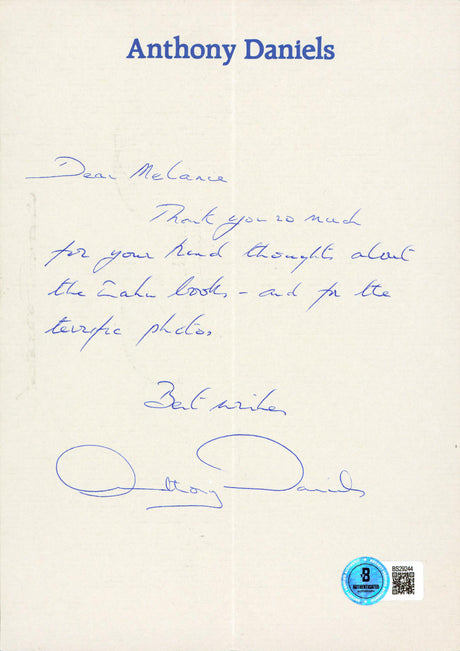 Anthony Daniels
Dear Melanie
Thank you so much
for your kind thoughts about
the books - and for the
terrific photos.
Best wishes
Anthony Daniels
B
BS29244